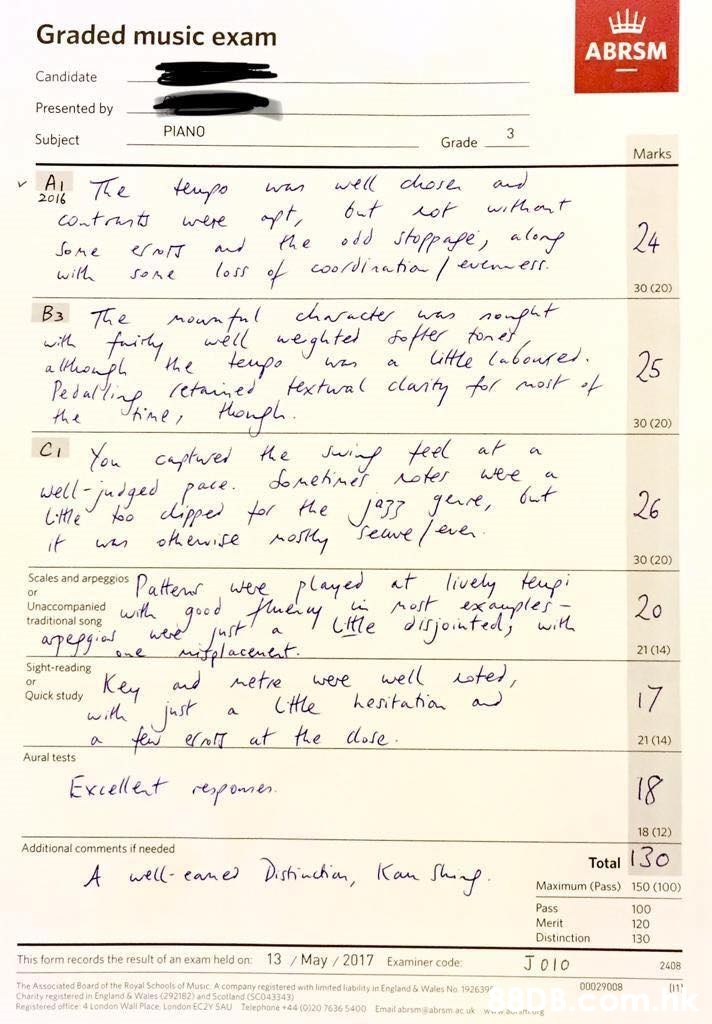 Graded music exam
ABRSM
Candidate
Presented by
Subject PIANO Grade 3
Marks
A1 The tempo was well chosen and
2016 contrasts were apt, but not without
some errors and the odd stoppage, along
with some loss of coordination / evenness.
24
30 (20)
B3 The mournful character was sought
with fairly well weighted softer tones
although the tempo was a little laboured.
Pedalling retained textural clarity for most of
the time, though.
25
30 (20)
C1 You captured the swing feel at a
well-judged pace. Sometimes notes were a
little too clipped for the jazz genre, but
it was otherwise mostly secure / even.
26
30 (20)
Scales and arpeggios
or
Unaccompanied
traditional song
Patterns were played at lively tempi
with good fluency in most examples -
arpeggios were just a little disjointed, with
one misplacement.
20
21 (14)
Sight-reading
or
Quick study
Key and metre were well noted,
with just a little hesitation and
a few errors at the close.
17
21 (14)
Aural tests
Excellent responses.
18
18 (12)
Additional comments if needed
A well-earned Distinction, Kan Shing.
Total 130
Maximum (Pass) 150 (100)
Pass 100
Merit 120
Distinction 130
This form records the result of an exam held on: 13 / May / 2017 Examiner code: J010 2408
The Associated Board of the Royal Schools of Music. A company registered with limited liability in England & Wales No. 1926395
Charity registered in England & Wales (292182) and Scotland (SC043343)
Registered office: 4 London Wall Place, London EC2Y 5AU Telephone +44 (0)20 7636 5400 Email abrsm@abrsm.ac.uk
00029008
88DB.com.hk